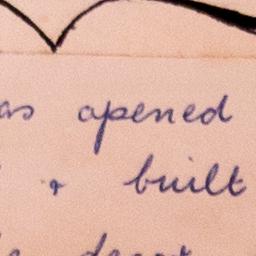 as opened
+ built